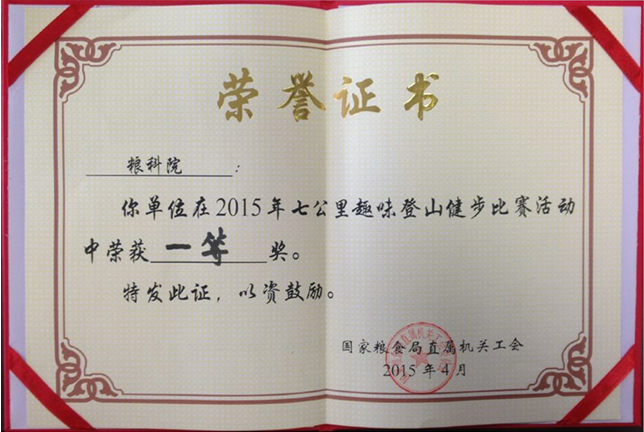 荣誉证书
粮科院：
你单位在2015年七公里趣味登山健步比赛活动
中荣获一等奖。
特发此证，以资鼓励。
国家粮食局直属机关工会
2015年4月